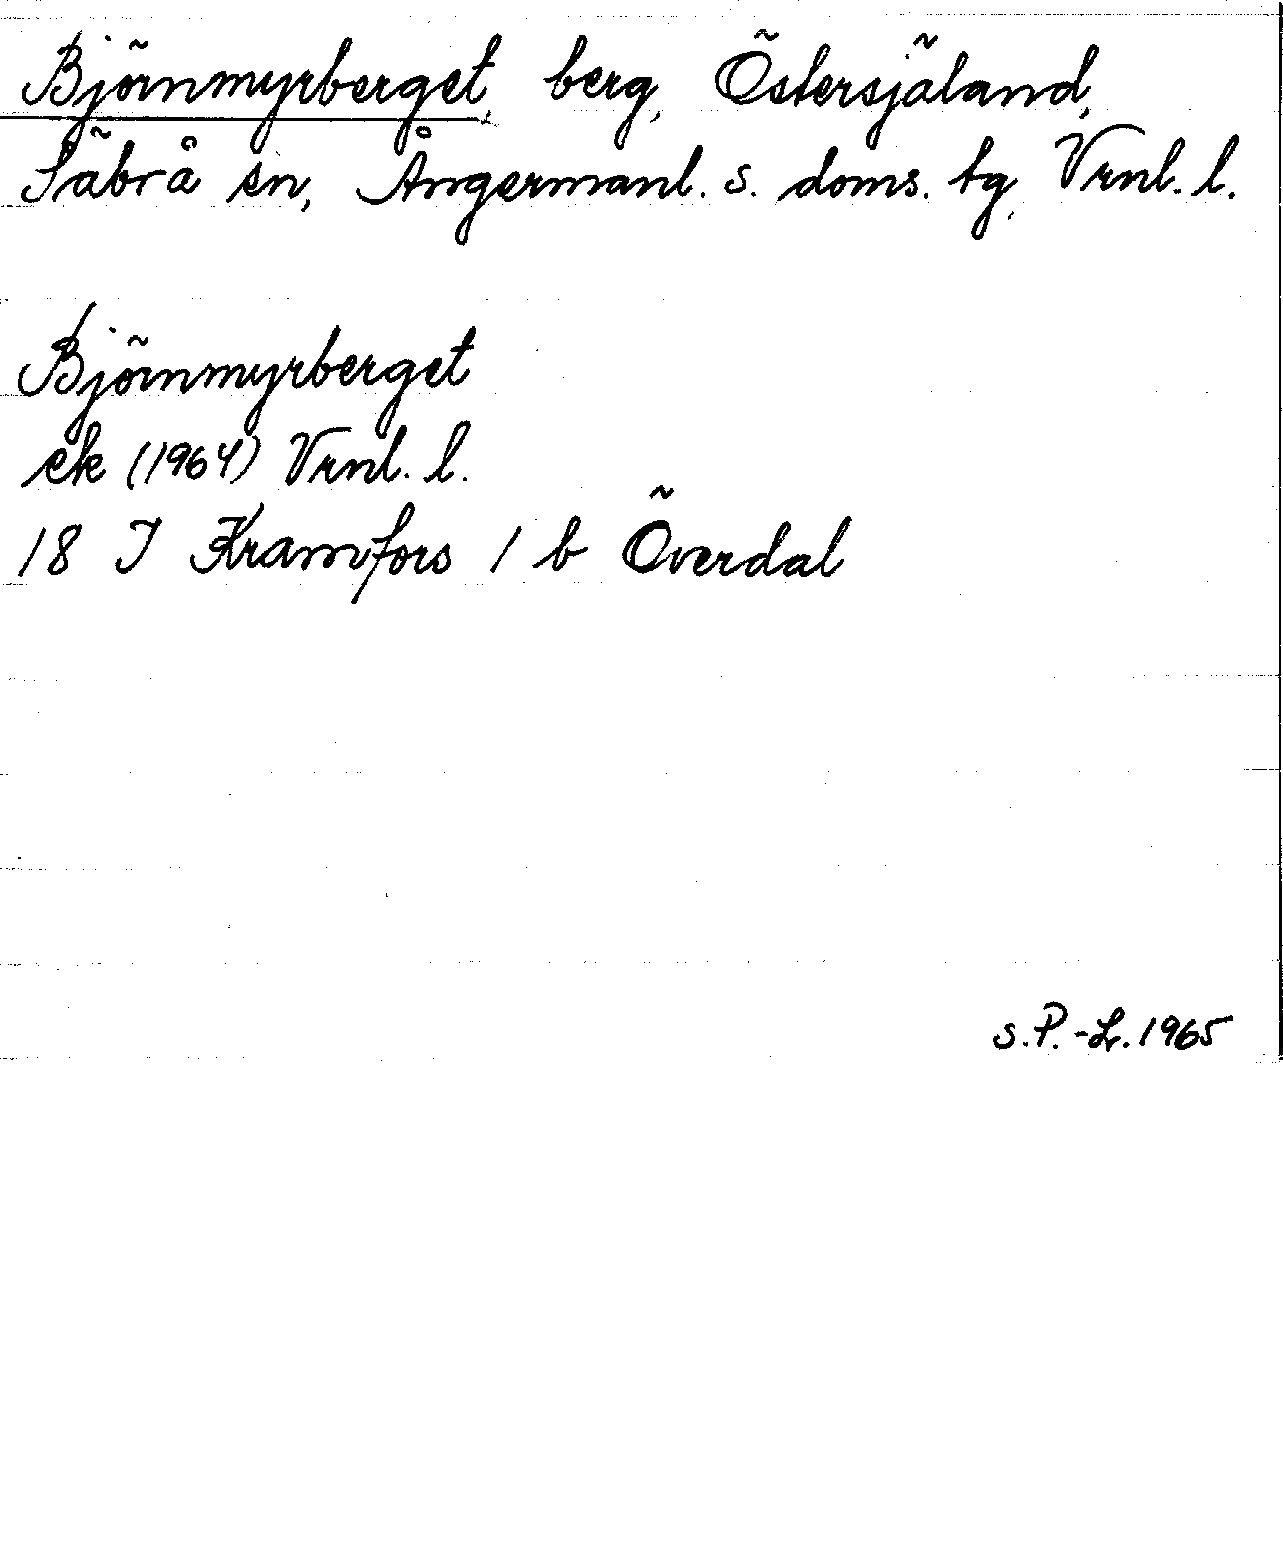 Björnmyrberget, berg, Östersjäland,
Säbrå sn, Ångermanl. s. doms. tg, Vrnl. l.
Björnmyrberget
ek (1964) Vrnl. l.
18 I Kramfors 1 b Överdal
s. P.-Lr. 1965